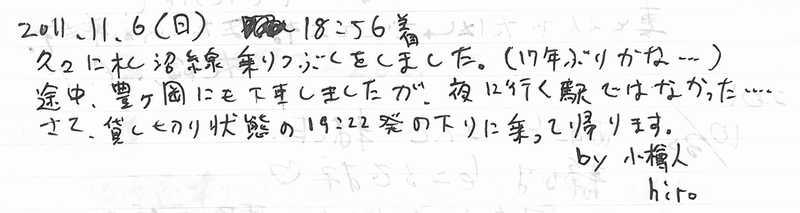 2011.11.6(日) 18:56着
久々に札沼線乗りつぶしをしました。(17年ぶりかな…)
途中、豊ヶ岡にも下車しましたが、夜に行く駅ではなかった……
さて、貸し切り状態の19:22発の下りに乗って帰ります。
by 小樽人
hiro